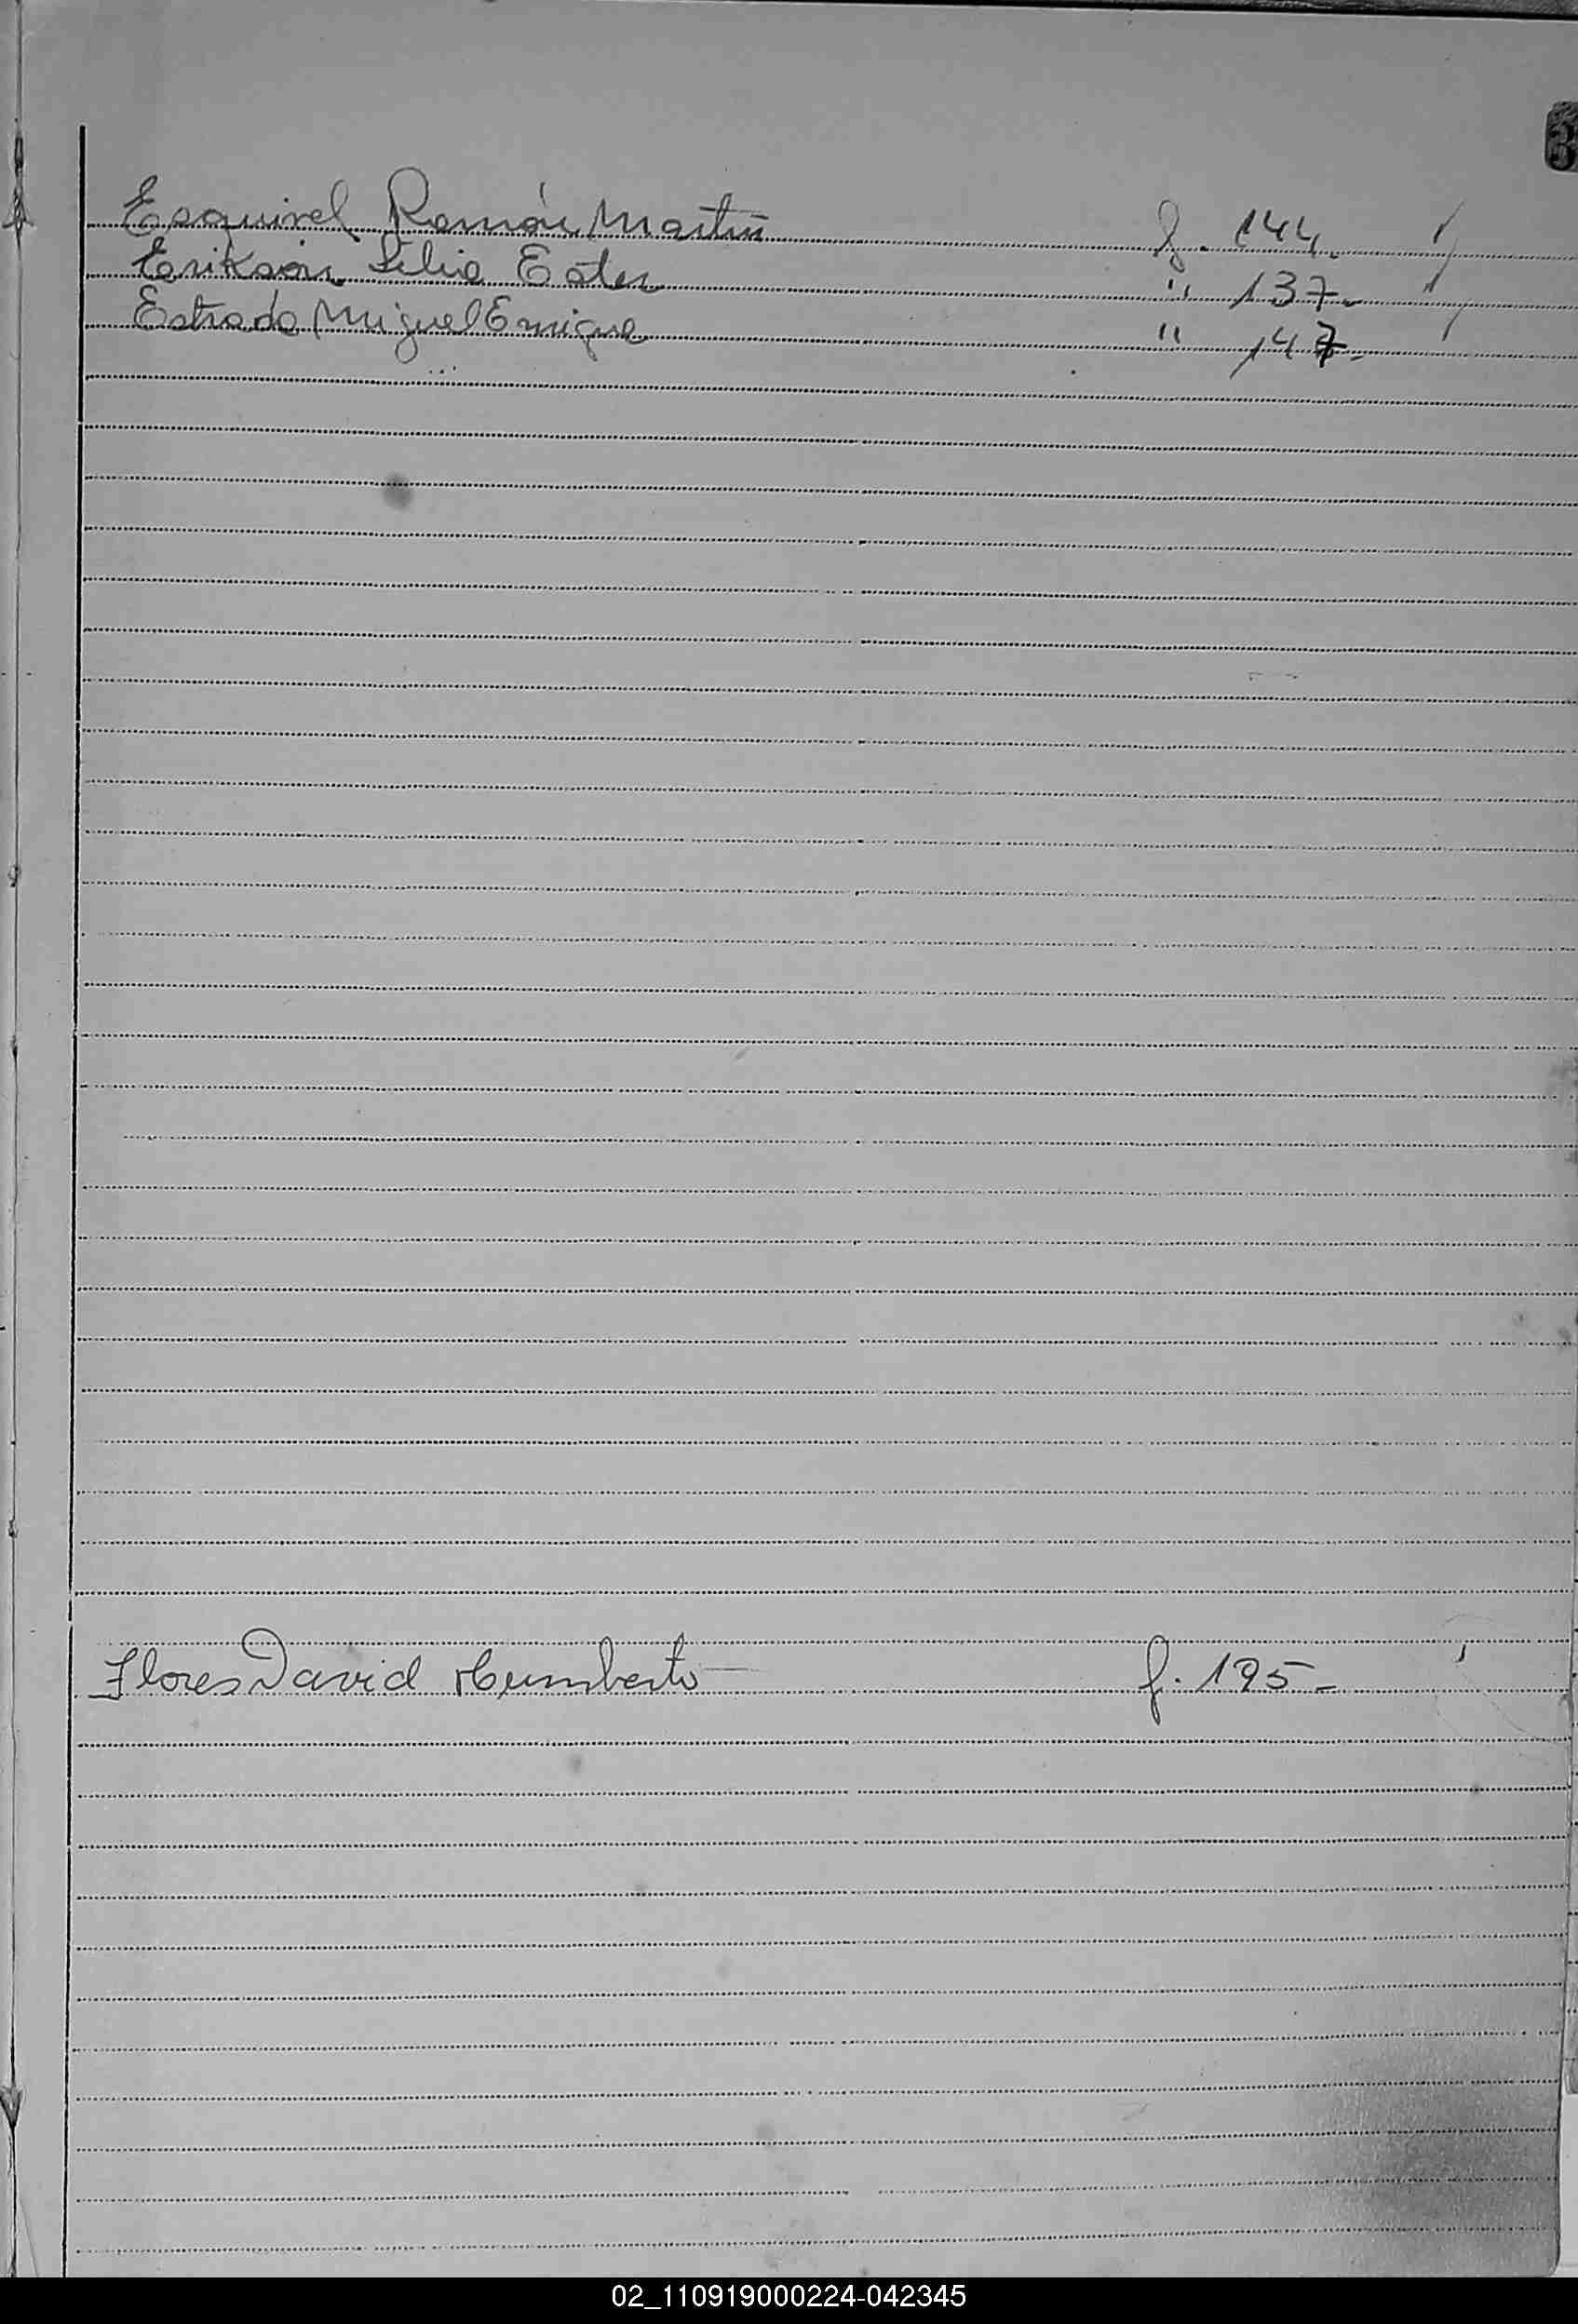 3
Esquivel Ramón Martín f. 144.
Erikson Lilia Ester " 137-
Estrada Miguel Enrique " 147-
Flores David Humberto f. 195-
02_110919000224-042345